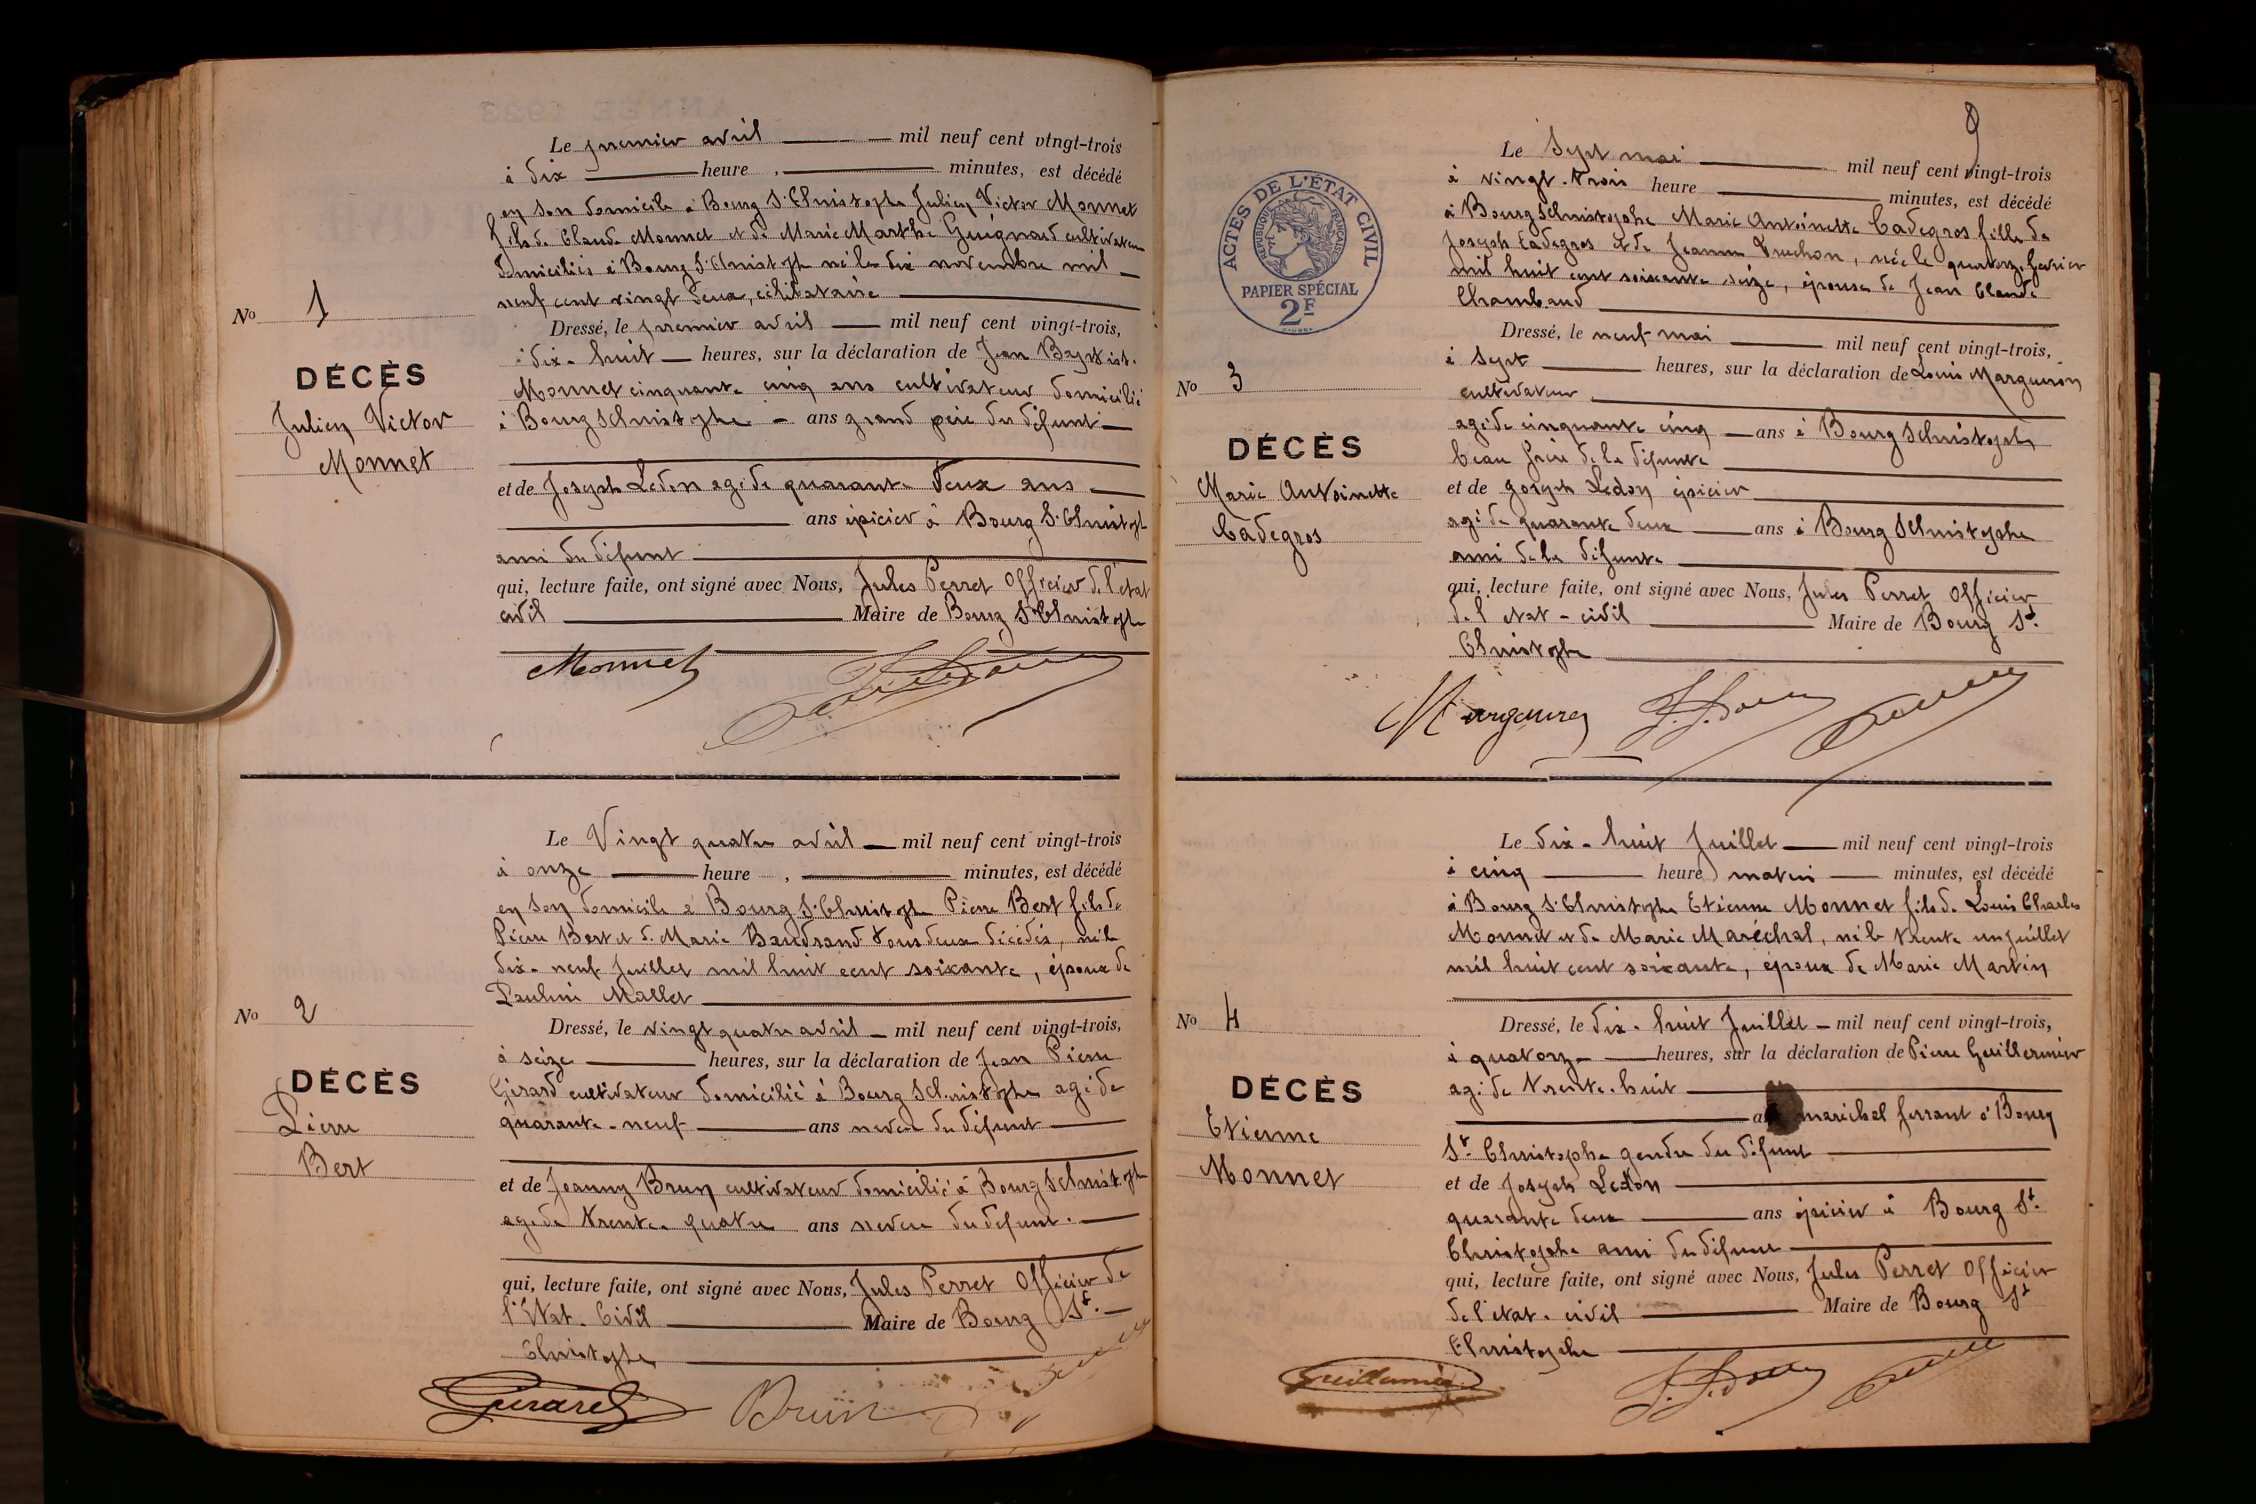 Le premier avril mil neuf cent vingt-trois
à dix heure , minutes, est décédé
en son domicile à Bourg St Christophe Julien Victor Monnet
fils de Claude Monnet et de Marie Marthe Guignard cultivateurs
domiciliés à Bourg St Christophe né le dix novembre mil
neuf cent vingt deux, célibataire
Dressé, le premier avril mil neuf cent vingt-trois,
à dix-huit heures, sur la déclaration de Jean Baptiste
Monnet cinquante cinq ans cultivateur domicilié
à Bourg St Christophe ans grand père du défunt
et de Joseph Ledon agé de quarante deux ans
ans épicier à Bourg St Christophe
ami du défunt
qui, lecture faite, ont signé avec Nous, Jules Perret Officier de l'état
civil Maire de Bourg St Christophe
Monnet
No 1
DÉCÈS
Julien Victor
Monnet
Le Vingt quatre avril mil neuf cent vingt-trois
à onze heure , minutes, est décédé
en son domicile à Bourg St Christophe Pierre Bert fils de
Pierre Bert et de Marie Baudrand tous deux décédés, né le
dix-neuf Juillet mil huit cent soixante, époux de
Pauline Mallet
Dressé, le vingt quatre avril mil neuf cent vingt-trois,
à seize heures, sur la déclaration de Jean Pierre
Gérard cultivateur domicilié à Bourg St Christophe agé de
quarante-neuf ans neveu du défunt
et de Joanny Brun cultivateur domicilié à Bourg St Christophe
agé de trente-quatre ans neveu du défunt.
qui, lecture faite, ont signé avec Nous, Jules Perret Officier de
l'Etat-Civil Maire de Bourg St
Christophe
Gérard Brun
No 2
DÉCÈS
Pierre
Bert
9
Le Sept mai mil neuf cent vingt-trois
à vingt-trois heure minutes, est décédé
à Bourg St Christophe Marie Antoinette Cadegros fille de
Joseph Cadegros et de Jeanne Truchon, née le quatorze février
mil huit cent soixante seize, épouse de Jean Claude
Chambaud
Dressé, le neuf mai mil neuf cent vingt-trois,
à Sept heures, sur la déclaration de Louis Marguiron
cultivateur
agé de cinquante cinq ans à Bourg St Christophe
beau frère de la défunte
et de Joseph Ledon épicier
agé de quarante deux ans à Bourg St Christophe
ami de la défunte
qui, lecture faite, ont signé avec Nous, Jules Perret Officier
de l'etat-civil Maire de Bourg St
Christophe
ACTES DE L'ÉTAT CIVIL
RÉPUBLIQUE FRANÇAISE
PAPIER SPÉCIAL
2F
No 3
DÉCÈS
Marie Antoinette
Cadegros
Le dix-huit Juillet mil neuf cent vingt-trois
à cinq heure matin minutes, est décédé
à Bourg St Christophe Etienne Monnet fils de Louis Charles
Monnet et de Marie Maréchal, né le trente un juillet
mil huit cent soixante, époux de Marie Martin
Dressé, le dix-huit Juillet mil neuf cent vingt-trois,
à quatorze heures, sur la déclaration de Pierre Guillermier
agé de trente-huit
maréchal ferrant à Bourg
St Christophe gendre du défunt
et de Joseph Ledon
quarante deux ans épicier à Bourg St
Christophe ami du défunt
qui, lecture faite, ont signé avec Nous, Jules Perret Officier
de l'etat-civil Maire de Bourg St
Christophe
Guillermier
No 4
DÉCÈS
Etienne
Monnet